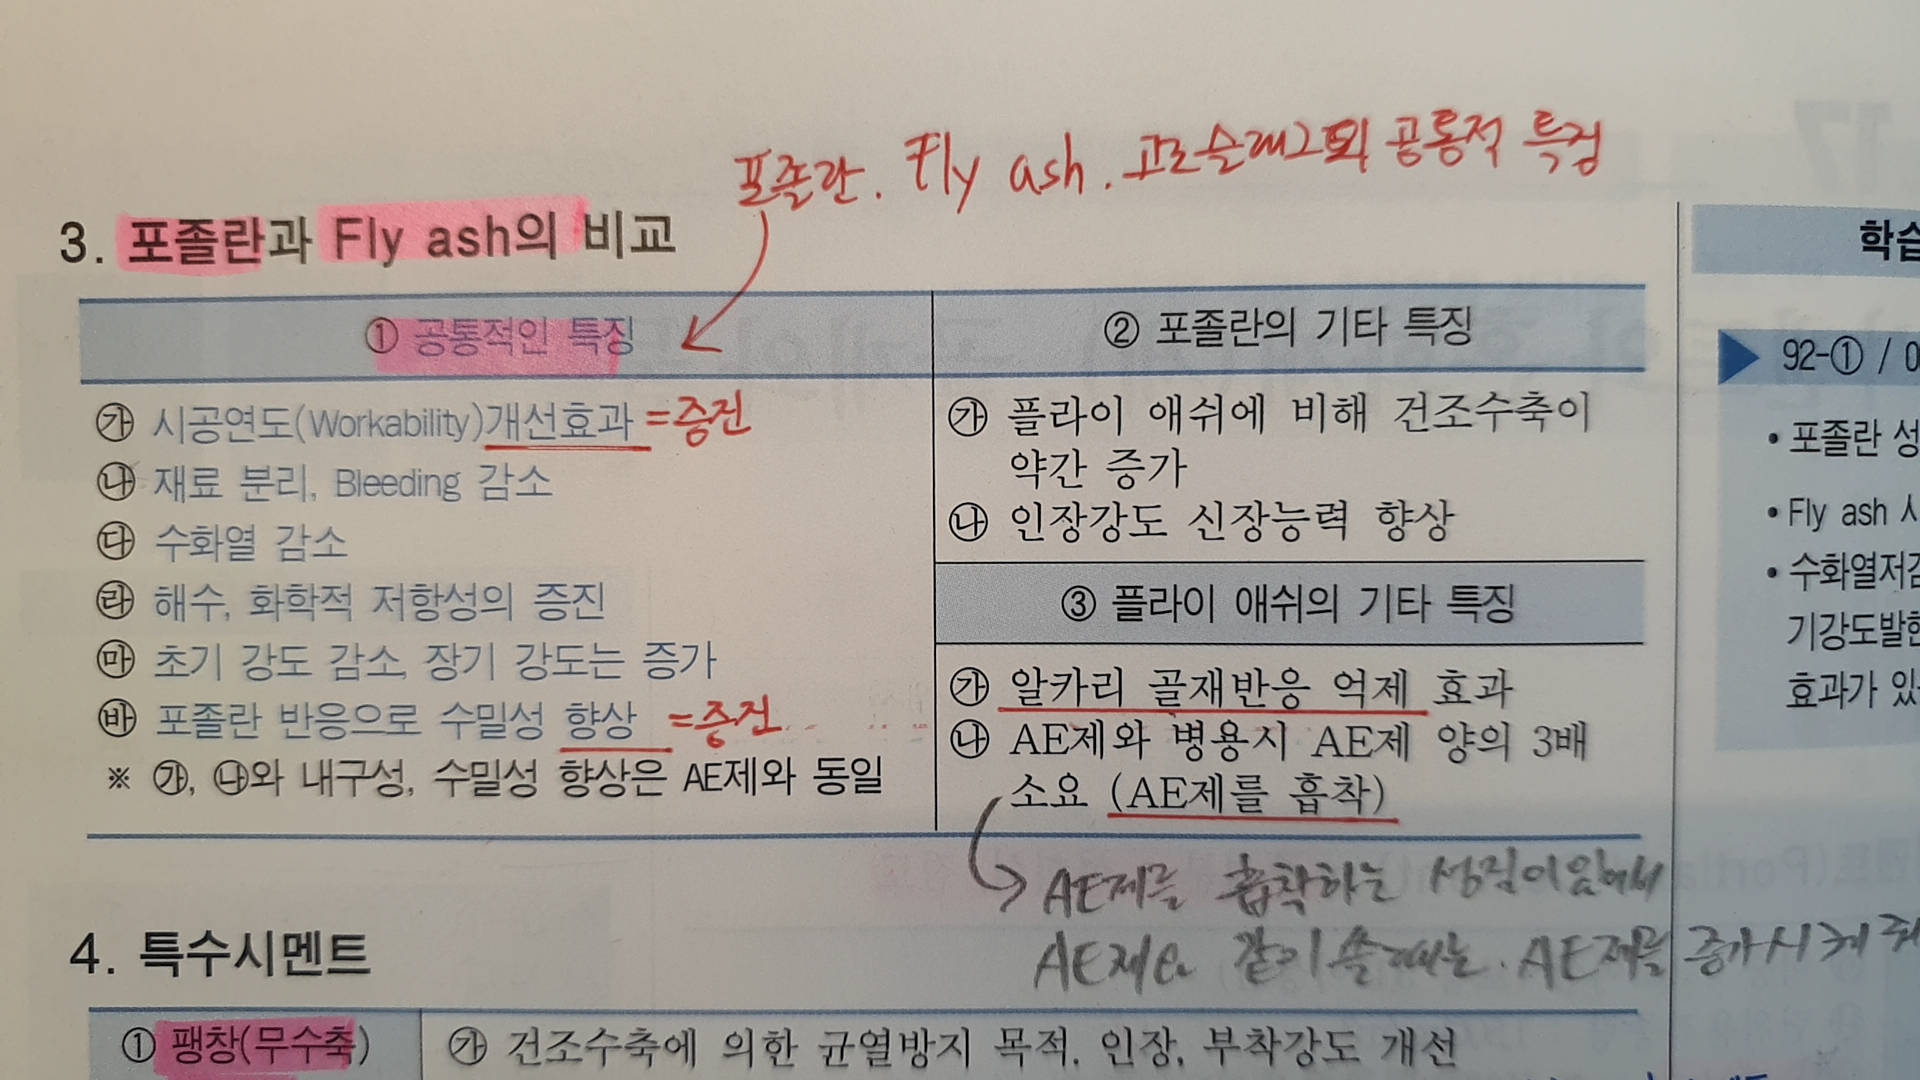 포졸란. Fly ash. 고로슬래그의 공통적 특징
3. 포졸란과 Fly ash의 비교
① 공통적인 특징
㉮ 시공연도(Workability)개선효과 =증진
㉯ 재료 분리, Bleeding 감소
㉰ 수화열 감소
㉱ 해수, 화학적 저항성의 증진
㉲ 초기 강도 감소, 장기 강도는 증가
㉳ 포졸란 반응으로 수밀성 향상 =증진
※ ㉮, ㉯와 내구성, 수밀성 향상은 AE제와 동일
② 포졸란의 기타 특징
㉮ 플라이 애쉬에 비해 건조수축이
약간 증가
㉯ 인장강도 신장능력 향상
③ 플라이 애쉬의 기타 특징
㉮ 알카리 골재반응 억제 효과
㉯ AE제와 병용시 AE제 양의 3배
소요 (AE제를 흡착)
AE제를 흡착하는 성질이있어서
AE제와 같이 쓸때는. AE제를 증가시켜
4. 특수시멘트
① 팽창(무수축)
㉮ 건조수축에 의한 균열방지 목적. 인장, 부착강도 개선
17
학습
92-① /
• 포졸란 성
• Fly ash 시
• 수화열저감
기강도발현
효과가 있